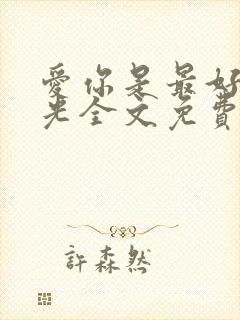 愛你是最好
光全文免費
許森然